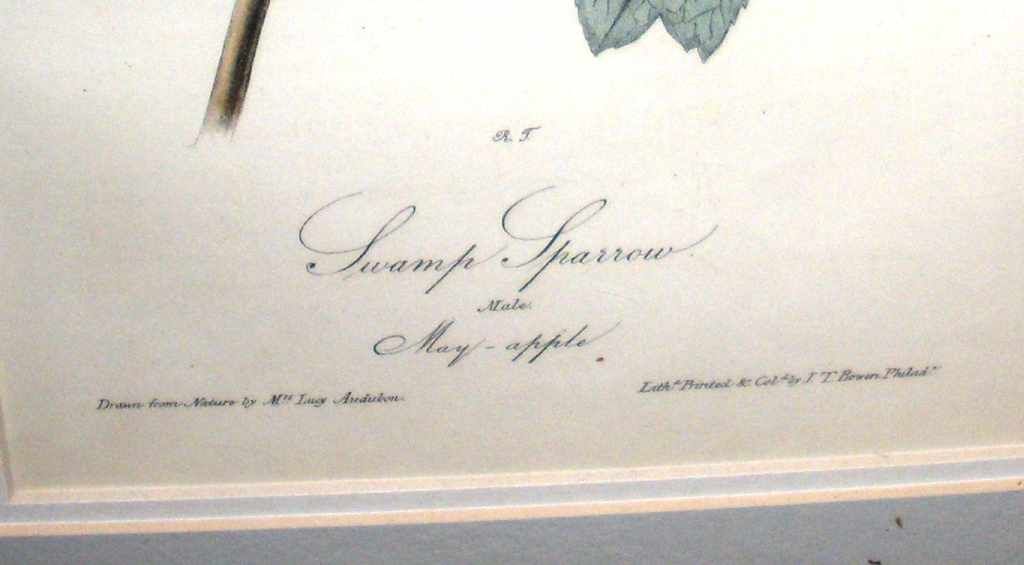 R. T.
Swamp Sparrow.
Male.
May-apple
Drawn from Nature by Mrs Lucy Audubon.
Lithd. Printed & Cold. by J. T. Bowen. Philada.